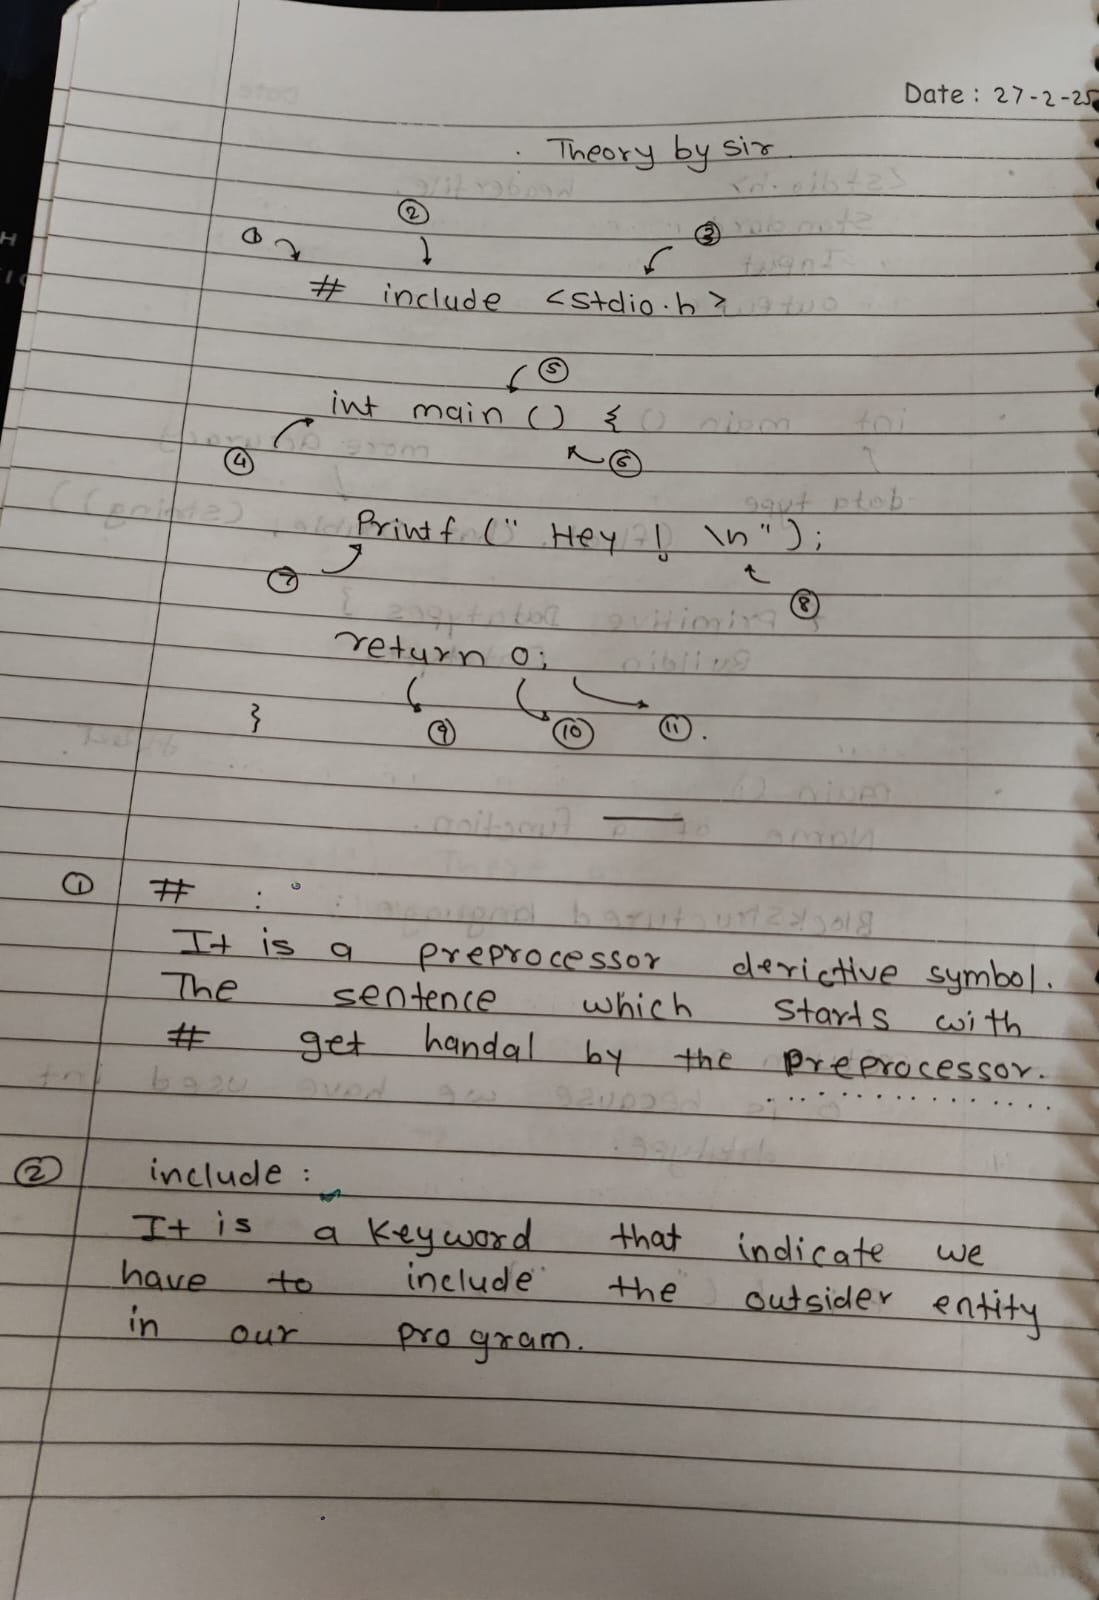 Date : 27-2-25
Theory by sir
①
②
③
# include <stdio.h>
⑤
int main () {
④
⑥
Printf (" Hey ! \n");
⑦
⑧
return 0;
}
⑨
⑩
⑪.
① # :
It is a preprocessor derictive symbol.
The sentence which starts with
# get handal by the preprocessor.
② include :
It is a keyword that indicate we
have to include the outsider entity
in our program.